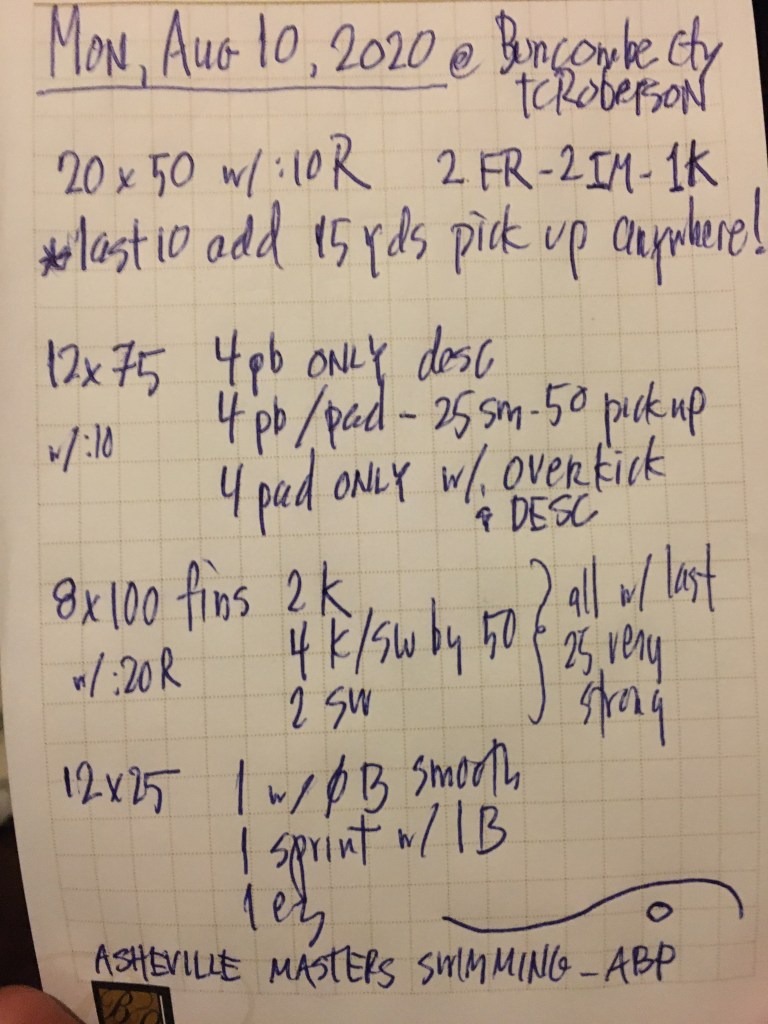 Mon, Aug 10, 2020 @ Buncombe Cty
TC Roberson
20 x 50 w/ :10 R 2 FR - 2 IM - 1K
*last 10 add 15 yds pick up anywhere!
12 x 75 4 pb ONLY desc
w/ :10 4 pb/pad - 25 sm - 50 pick up
4 pad ONLY w/. overkick
& DESC
8 x 100 fins 2 K } all w/ last
w/ :20 R 4 K/SW by 50 25 very
2 SW strong
12 x 25 1 w/ ØB smooth
1 sprint w/ 1B
1 ez
ASHEVILLE MASTERS SWIMMING - ABP